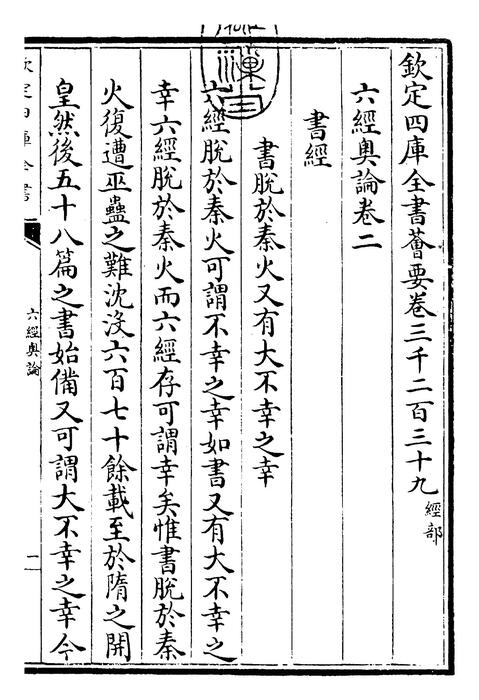 欽定四庫全書薈要卷三千二百三十九 經部
六經奧論卷二
書經
書脫於秦火又有大不幸之幸
六經脫於秦火可謂不幸之幸如書又有大不幸之
幸六經脫於秦火而六經存可謂幸矣惟書脫於秦
火復遭巫蠱之難沈没六百七十餘載至於隋之開
皇然後五十八篇之書始備又可謂大不幸之幸今
欽定四庫全書
六經奧論
一